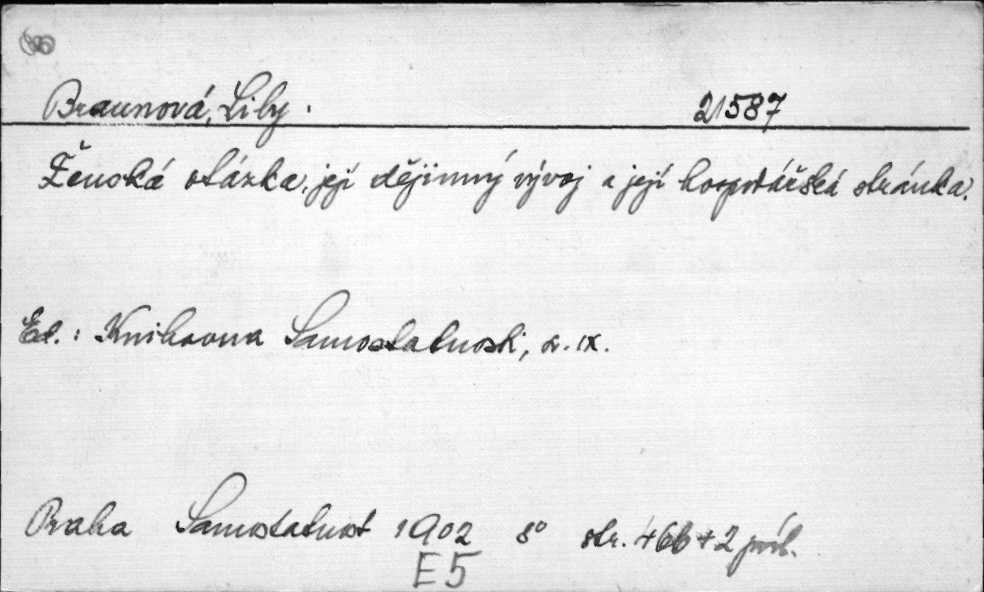 Braunová, Lily. 21587
Ženská otázka, její dějinný vývoj a její hospodářská stránka.
Ed.: Knihovna Samostatnosti, sv. IX.
Praha Samostatnost 1902 8° str. 466 + 2 příl.
E5